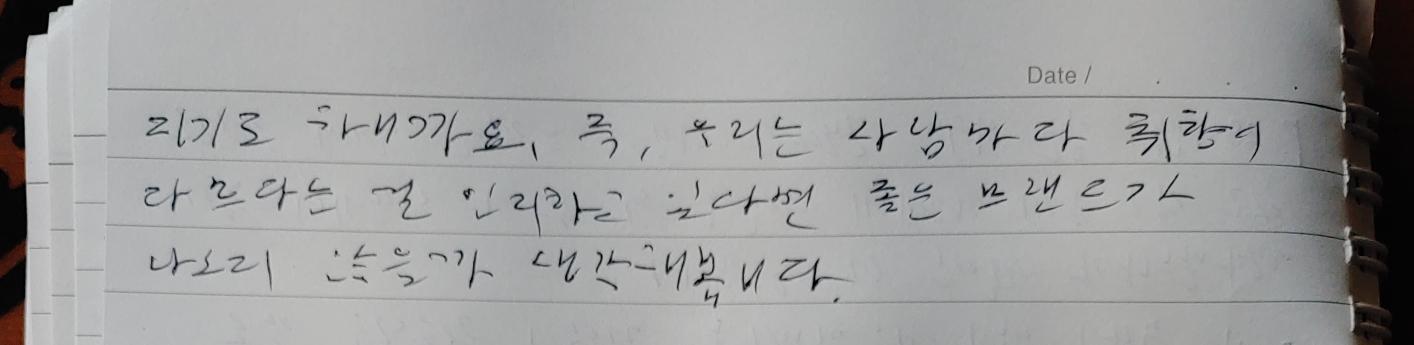 Date /
리기로 하내가요, 즉, 우리는 사람마다 취향이
다르다는 걸 인지하고 있다면 좋은 브랜드가
나오지 않을까 생각해봅니다.